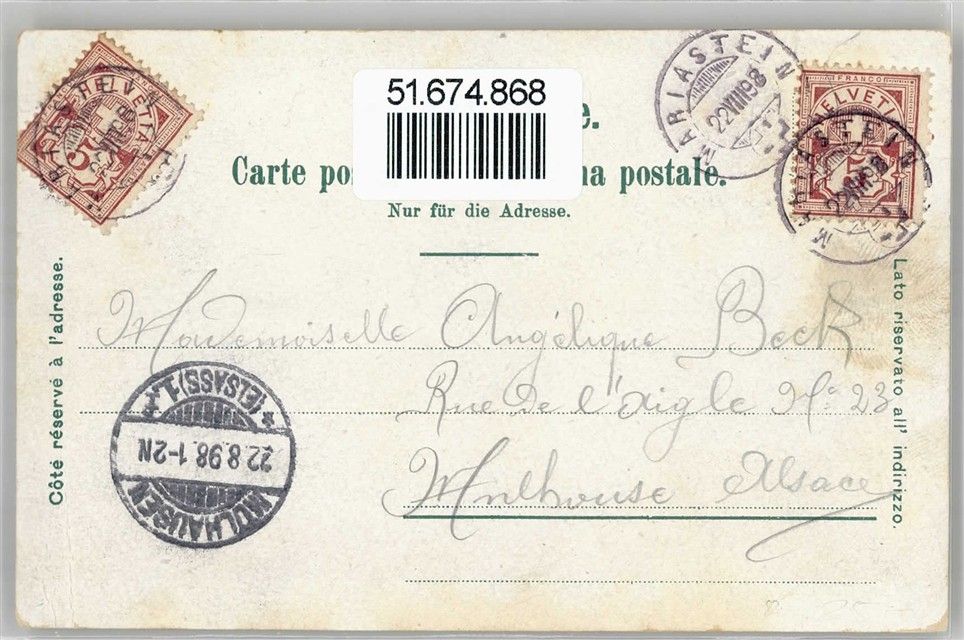 51.674.868
e.
Carte po na postale.
Nur für die Adresse.
Côté réservé à l'adresse.
Lato riservato all' indirizzo.
Mademoiselle Angélique Beck
Rue de l'Aigle No 23
Mulhouse Alsace
MARIASTEIN
22 VIII 98
FRANCO
HELVETIA
5
MARIASTEIN
22 VIII 98
HELVETIA
5
MÜLHAUSEN
22.8.98.1-2N
*(ELSASS)1.*